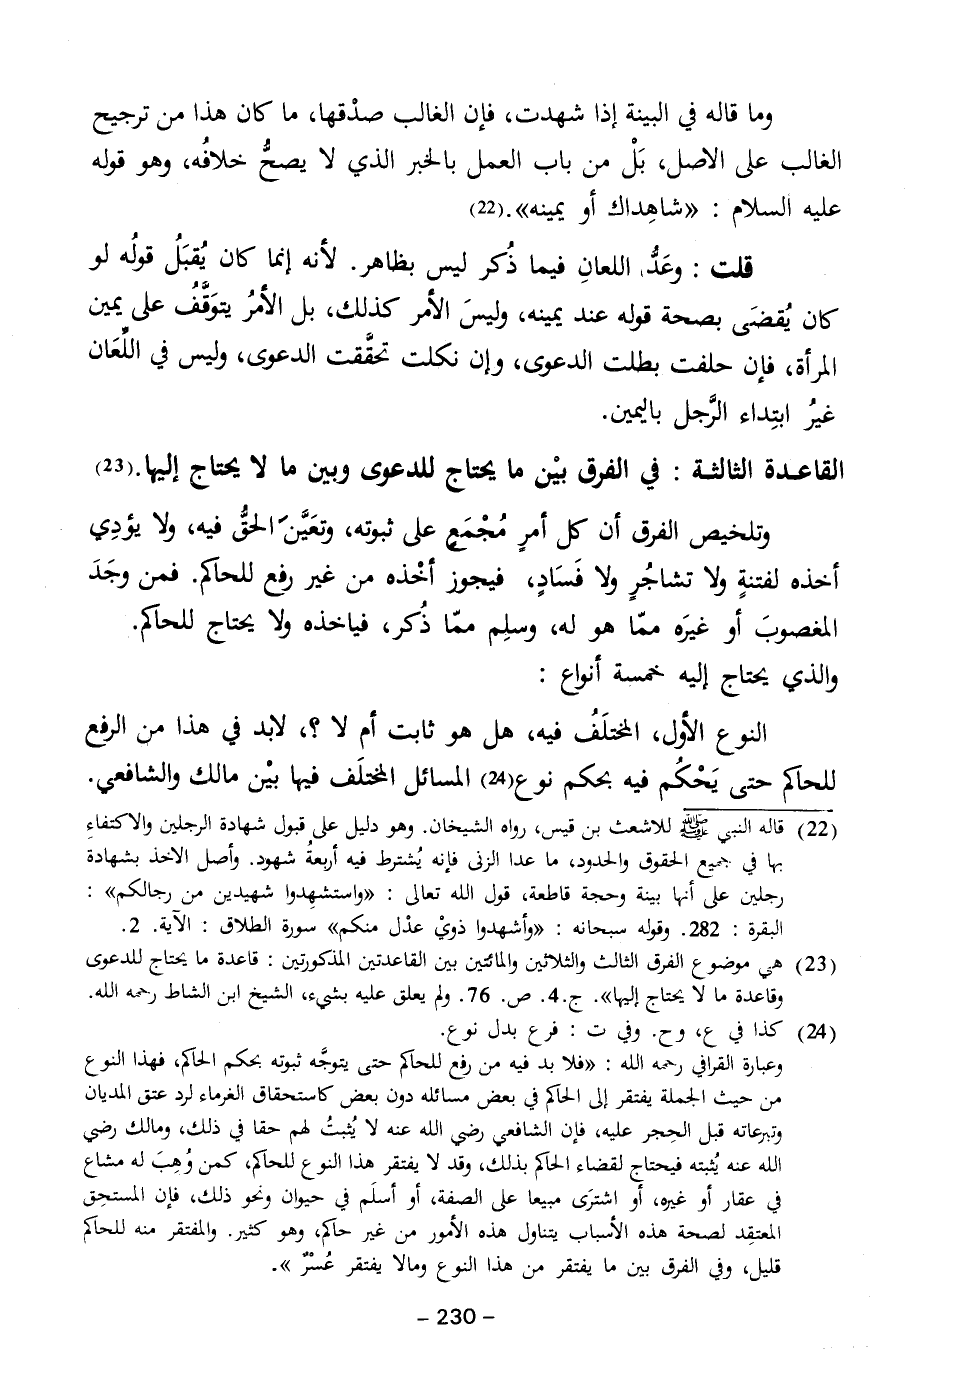 وما قاله في البينة إذا شهدت، فإن الغالب صدْقها، ما كان هذا من ترجيح
الغالب على الاصل، بَلْ من باب العمل بالخبر الذي لا يصحُّ خلافُه، وهو قوله
عليه السلام : «شاهِداك أو يمينه».(22)
قلت : وعَدُّ اللعانِ فيما ذُكر ليس بظاهر. لأنه إنما كان يُقبَلُ قولُه لو
كان يُقضَى بصحة قوله عند يمينه، وليسَ الأمر كذلك، بل الأمرُ يتوَقَّفُ على يمين
المرأة، فإن حلفت بطلت الدعوى، وإن نكلت تحقَّقت الدعوى، وليس في اللِّعَان
غيرُ ابتِداء الرَّجل باليمين.
القاعـدة الثالثـة : في الفرق بيْن ما يحتاج للدعوى وبين ما لا يحتاج إليها.(23)
وتلخيص الفرق أن كل أمرٍ مُجْمَعٍ على ثبوته، وتعَيَّنَ الحقُّ فيه، ولا يؤدِي
أخذه لفتنةٍ ولا تشاجُرٍ ولا فَسَادٍ، فيجوز أخْذه من غير رفع للحاكم. فمن وجَدَ
المغصوبَ أو غيرَه ممّا هو له، وسلِم ممّا ذُكر، فياخذه ولا يحتاج للحاكم.
والذي يحتاج إليه خمسة أنواع :
النوع الأول، المختلَفُ فيه، هل هو ثابت أم لا ؟، لابد في هذا من الرفع
للحاكم حتى يَحْكُم فيه بحكم نوع(24) المسائل المختلَف فيها بيْن مالك والشافعي.
(22) قاله النبي ﷺ للاشعث بن قيس، رواه الشيخان. وهو دليل على قبول شهادة الرجلين والاكتفاءِ
بها في جميع الحقوق والحدود، ما عدا الزنى فإنه يُشترط فيه أربعةُ شهود. وأصل الاخذ بشهادة
رجلين على أنها بينة وحجة قاطعة، قول الله تعالى : «واستشهِدوا شهيدين من رجالكم» :
البقرة : 282. وقوله سبحانه : «وأشهدوا ذويْ عدْل منكم» سورة الطلاق : الآية. 2.
(23) هي موضوع الفرق الثالث والثلاثين والمائتين بين القاعدتين المذكورتين : قاعدة ما يحتاج للدعوى
وقاعدة ما لا يحتاج إليها». ج.4. ص. 76. ولم يعلق عليه بشيء، الشيخ ابن الشاط رحمه الله.
(24) كذا في ع، وح. وفي ت : فرع بدل نوع.
وعبارة القرافي رحمه الله : «فلا بد فيه من رفع للحاكم حتى يتوجَّه ثبوته بحكم الحاكم، فهذا النوع
من حيث الجملة يفتقر إلى الحاكم في بعض مسائله دون بعض كاستحقاق الغرماء لرد عتق المديان
وتبرعاته قبل الحجر عليه، فإن الشافعي رضي الله عنه لا يُثبتُ لهم حقا في ذلك، ومالك رضي
الله عنه يُثبته فيحتاج لقضاء الحاكم بذلك، وقد لا يفتقر هذا النوع للحاكم، كمن وُهِبَ له مشاع
في عقار أو غيره، أو اشترَى مبيعا على الصفة، أو أسلَم في حيوان ونحو ذلك، فإن المستحِق
المعتقِد لصحة هذه الأسباب يتناول هذه الأمور من غير حاكم، وهو كثير. والمفتقر منه للحاكم
قليل، وفي الفرق بين ما يفتقر من هذا النوع ومالا يفتقر عُسْرٌ ».
- 230 -